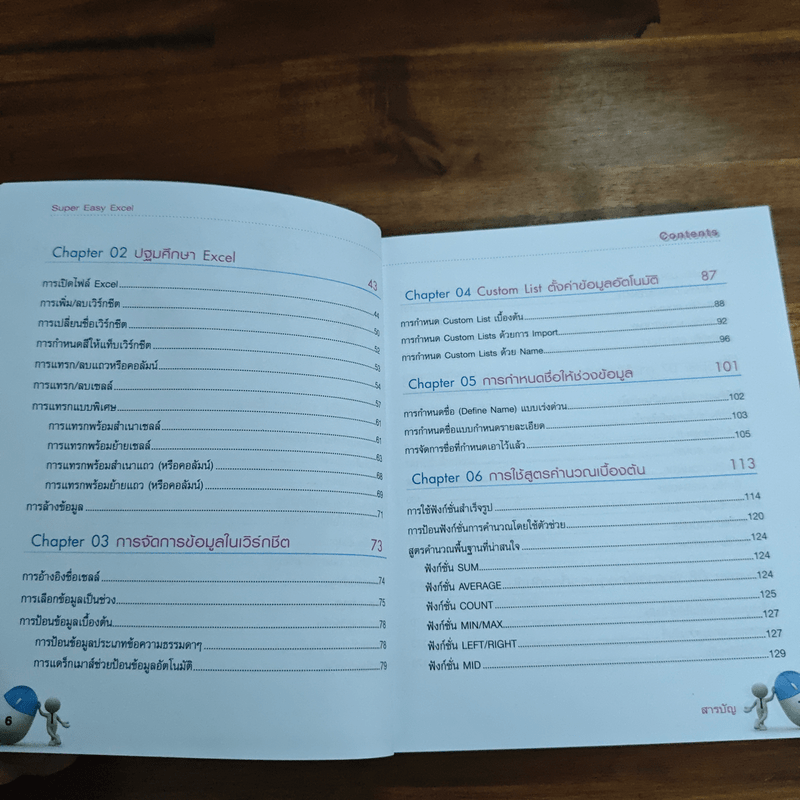 Super Easy Excel
Chapter 02 ปฐมศึกษา Excel 43
การเปิดไฟล์ Excel 44
การเพิ่ม/ลบเวิร์กชีต 50
การเปลี่ยนชื่อเวิร์กชีต 52
การกำหนดสีให้แท็บเวิร์กชีต 53
การแทรก/ลบแถวหรือคอลัมน์ 54
การแทรก/ลบเซลล์ 57
การแทรกแบบพิเศษ 61
การแทรกพร้อมสำเนาเซลล์ 61
การแทรกพร้อมย้ายเซลล์ 63
การแทรกพร้อมสำเนาแถว (หรือคอลัมน์) 68
การแทรกพร้อมย้ายแถว (หรือคอลัมน์) 69
การล้างข้อมูล 71
Chapter 03 การจัดการข้อมูลในเวิร์กชีต 73
การอ้างอิงชื่อเซลล์ 74
การเลือกข้อมูลเป็นช่วง 75
การป้อนข้อมูลเบื้องต้น 78
การป้อนข้อมูลประเภทข้อความธรรมดาๆ 78
การแดร็กเมาส์ช่วยป้อนข้อมูลอัตโนมัติ 79
6
Contents
Chapter 04 Custom List ตั้งค่าข้อมูลอัตโนมัติ 87
การกำหนด Custom List เบื้องต้น 88
การกำหนด Custom Lists ด้วยการ Import 92
การกำหนด Custom Lists ด้วย Name 96
Chapter 05 การกำหนดชื่อให้ช่วงข้อมูล 101
การกำหนดชื่อ (Define Name) แบบเร่งด่วน 102
การกำหนดชื่อแบบกำหนดรายละเอียด 103
การจัดการชื่อที่กำหนดเอาไว้แล้ว 105
Chapter 06 การใช้สูตรคำนวณเบื้องต้น 113
การใช้ฟังก์ชั่นสำเร็จรูป 114
การป้อนฟังก์ชั่นการคำนวณโดยใช้ตัวช่วย 120
สูตรคำนวณพื้นฐานที่น่าสนใจ 124
ฟังก์ชั่น SUM 124
ฟังก์ชั่น AVERAGE 124
ฟังก์ชั่น COUNT 125
ฟังก์ชั่น MIN/MAX 127
ฟังก์ชั่น LEFT/RIGHT 127
ฟังก์ชั่น MID 129
สารบัญ